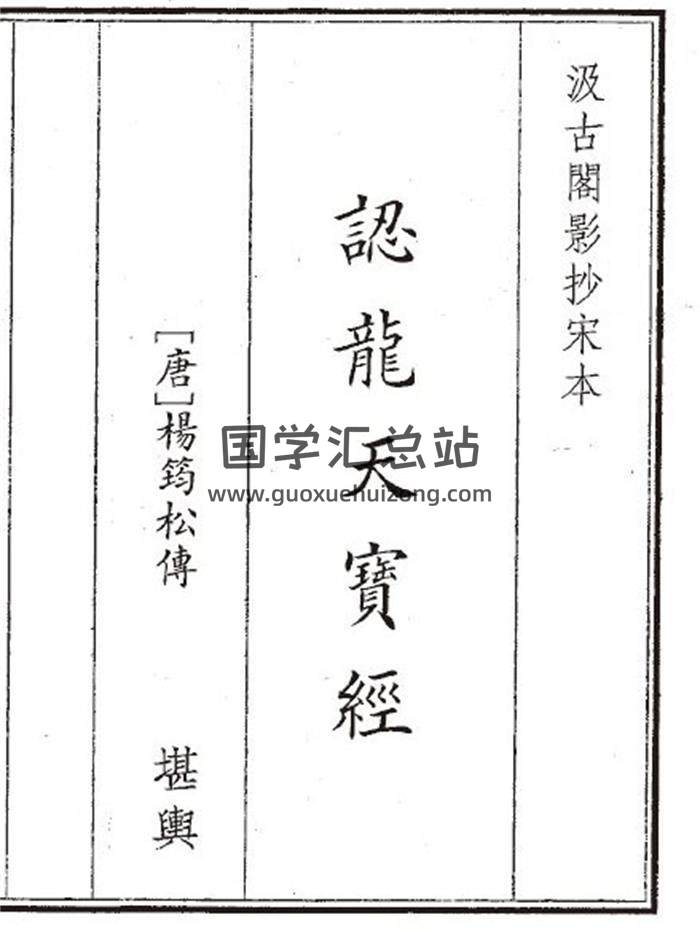 汲古閣影抄宋本
認龍天寶經
[唐]楊筠松傳
堪輿
国学汇总站
www.guoxuehuizong.com